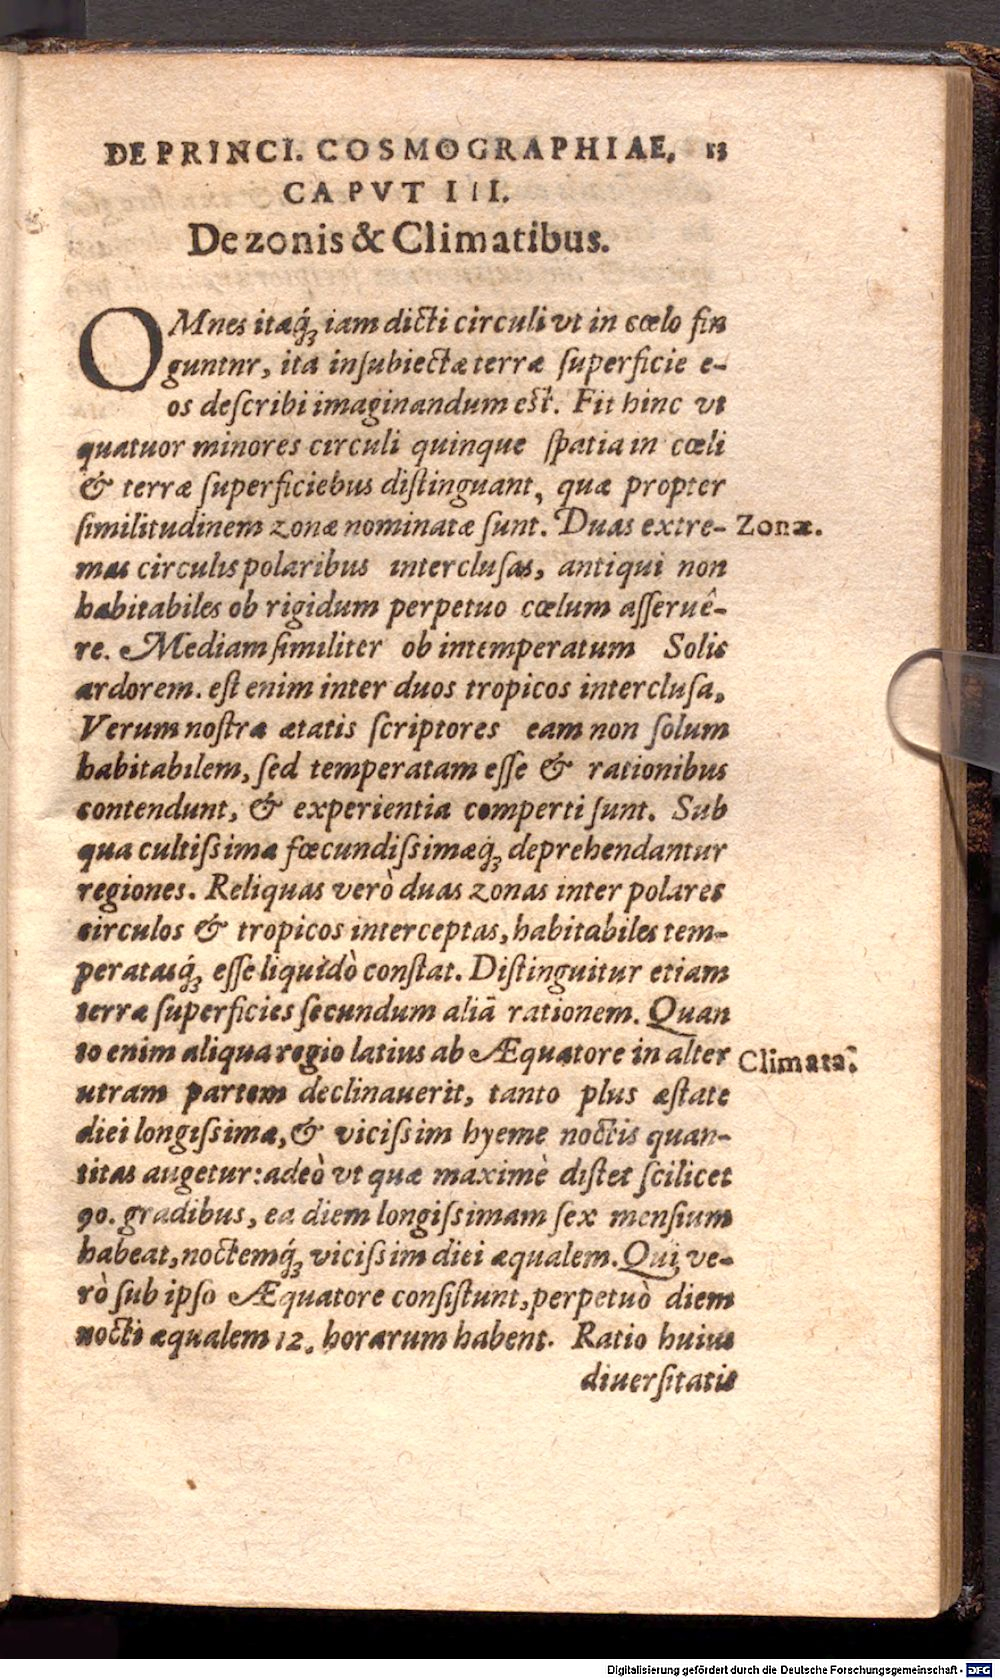 DE PRINCI. COSMOGRAPHIAE. 13
CAPVT III.
De zonis & Climatibus.
OMnes itaq́ꝫ iam dicti circuli vt in cœlo fin
guntnr, ita in ſubiectæ terræ ſuperficie e-
os deſcribi imaginandum eſt. Fit hinc vt
quatuor minores circuli quinque ſpatia in cœli
& terræ ſuperficiebus diſtinguant, quæ propter
ſimilitudinem zonæ nominatæ ſunt. Duas extre- Zonæ.
mas circulis polaribus interclusas, antiqui non
habitabiles ob rigidum perpetuo cœlum aſſeruê-
re. Mediam ſimiliter ob intemperatum Solis
ardorem. eſt enim inter duos tropicos intercluſa,
Verum noſtræ ætatis ſcriptores eam non ſolum
habitabilem, ſed temperatam eſſe & rationibus
contendunt, & experientia comperti ſunt. Sub
qua cultiſsima fœcundiſsimæq́ꝫ deprehendantur
regiones. Reliquas verò duas zonas inter polares
circulos & tropicos interceptas, habitabiles tem-
peratasq́ꝫ eſſe liquidò conſtat. Diſtinguitur etiam
terræ ſuperficies ſecundum aliā rationem. Quan
to enim aliqua regio latius ab Æquatore in alter Climata.
utram partem declinauerit, tanto plus æſtate
diei longiſsima, & viciſsim hyeme noctis quan-
titas augetur: adeò vt quæ maximè diſtet ſcilicet
90. gradibus, ea diem longiſsimam ſex menſium
habeat, noctemq́ꝫ viciſsim diei æqualem. Qui ve-
rò ſub ipſo Æquatore conſiſtunt, perpetuò diem
nocti æqualem 12. horarum habent. Ratio huius
diuerſitatis
Digitalisierung gefördert durch die Deutsche Forschungsgemeinschaft - DFG